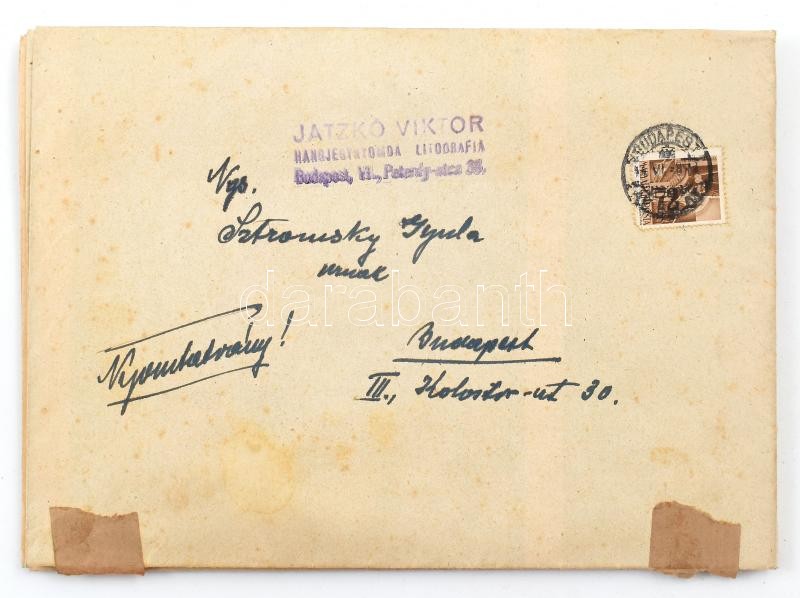 JATZKÓ VIKTOR
HANGJEGYNYOMDA LITOGRAFIA
Budapest, VII., Peterdy-utca 38.
BUDAPEST
Nys.
Sztromsky Gyula
urnak
darabanth
Nyomtatvány!
Budapest
III., Kolostor-út 30.